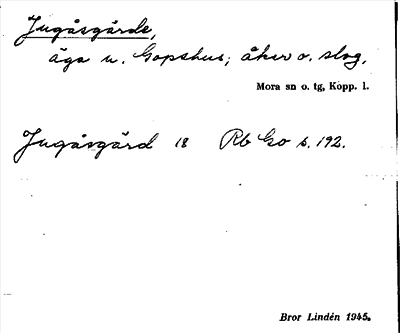 Jugåsgärde,
äga u. Gopshus; åker o. slog.
Mora sn o. tg, Kopp. l.
Jugåsgärd 18 Rb Go s. 192.
Bror Lindén 1945.